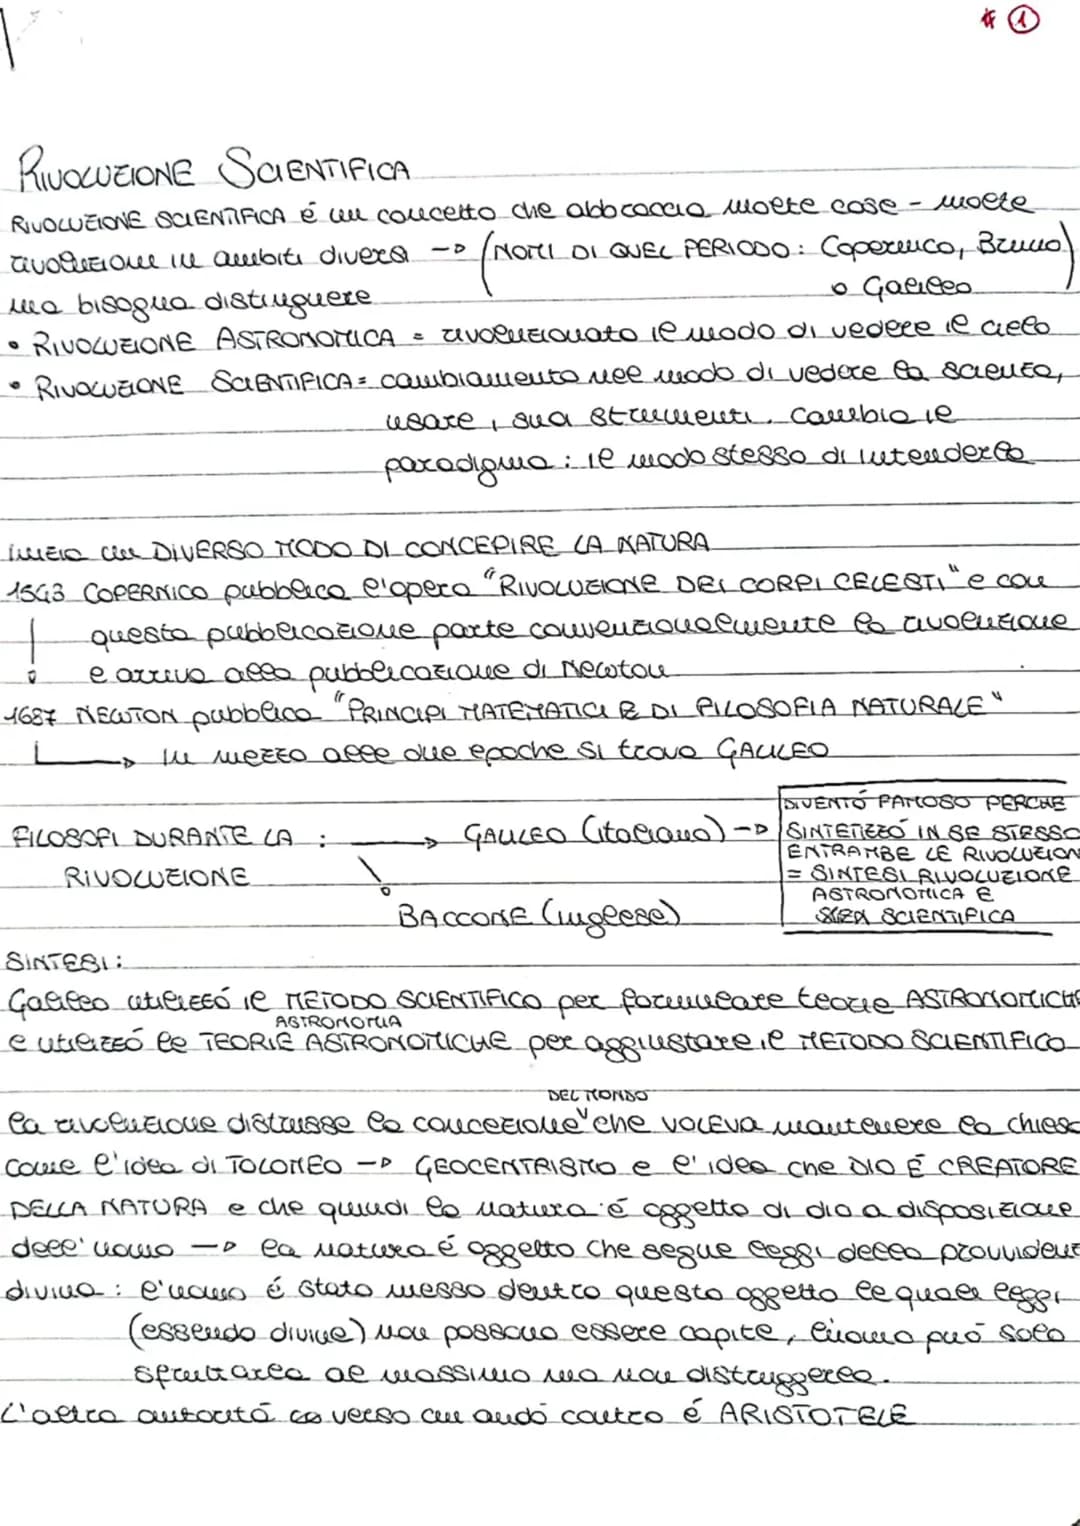 # 1
RIVOLUZIONE SCIENTIFICA
RIVOLUZIONE SCIENTIFICA é un concetto che abbraccia molte cose - molte
rivoluzioni in ambiti diversi -> (NOMI DI QUEL PERIODO: Copernico, Bruno
o Galileo)
ma bisogna distinguere
• RIVOLUZIONE ASTRONOMICA = rivoluzionato il modo di vedere il cielo
• RIVOLUZIONE SCIENTIFICA = cambiamento nel modo di vedere la scienza,
usare i suoi strumenti. Cambia il
paradigma: il modo stesso di intenderla
inizia un DIVERSO MODO DI CONCEPIRE LA NATURA
1543 COPERNICO pubblica l'opera "RIVOLUZIONE DEI CORPI CELESTI" e con
questa pubblicazione parte convenzionalmente la rivoluzione
e arriva alla pubblicazione di Newton
1687 NEWTON pubblica "PRINCIPI MATEMATICI DI FILOSOFIA NATURALE"
-> in mezzo alle due epoche si trova GALILEO
FILOSOFI DURANTE LA : -> GALILEO (italiano) ->
RIVOLUZIONE
BACCONE (inglese)
DIVENTÓ FAMOSO PERCHE
SINTETIZZÓ IN SE STESSO
ENTRAMBE LE RIVOLUZION
= SINTESI RIVOLUZIONE
ASTRONOMICA E
SCIENTIFICA
SINTESI:
Galileo utilizzó il METODO SCIENTIFICO per formulare teorie ASTRONOMICHE
ASTRONOMIA
e utilizzó le TEORIE ASTRONOMICHE per aggiustare il METODO SCIENTIFICO
DEL MONDO
la rivoluzione distrusse la concezione che voleva mantenere la chiesa
come l'idea di TOLOMEO -> GEOCENTRISMO e l'idea che DIO É CREATORE
DELLA NATURA e che quindi la natura é oggetto di dio a disposizione
dell'uomo -> la natura é oggetto che segue leggi della provvidenz
divina: l'uomo é stato messo dentro questo oggetto le quali leggi
(essendo divine) non possono essere capite, l'uomo puó solo
sfruttarla al massimo ma non distruggerla.
L'altra autoritá verso cui andó contro é ARISTOTELE